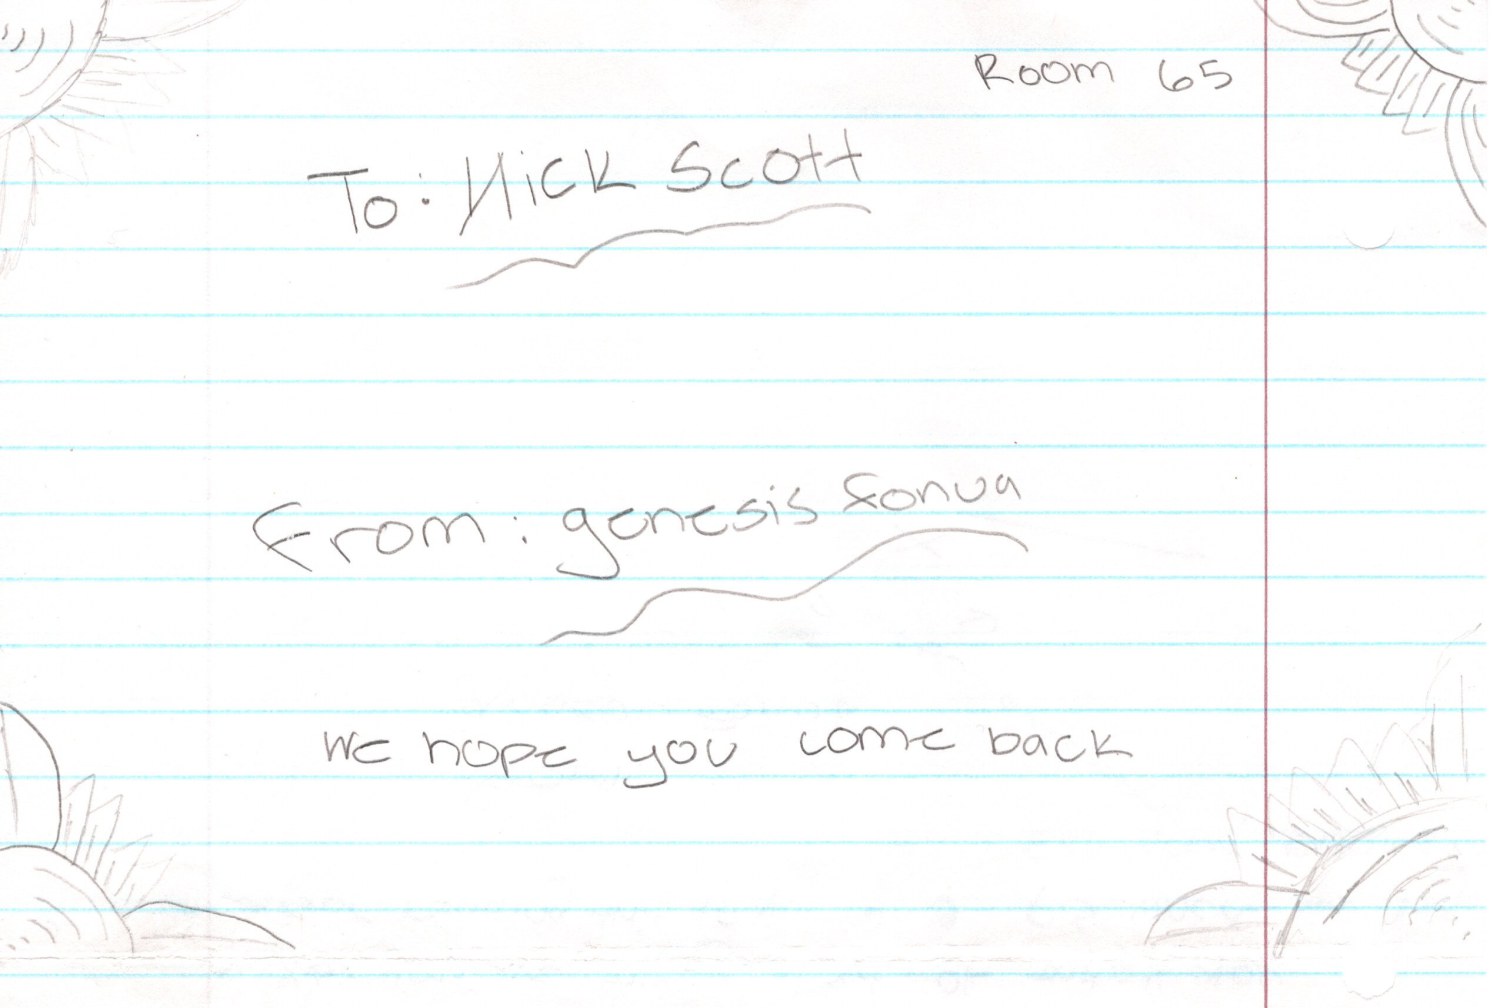 Room 65
To: Nick Scott
From: genesis fonua
We hope you come back